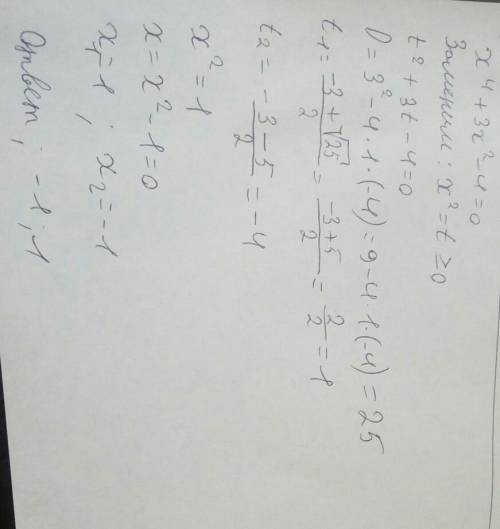 x⁴ + 3x² - 4 = 0
Заменим: x² = t ≥ 0
t² + 3t - 4 = 0
D = 3² - 4·1·(-4) = 9 - 4·1·(-4) = 25
t₁ = (-3 + √25)/2 = (-3 + 5)/2 = 2/2 = 1
t₂ = (-3 - 5)/2 = -4
x² = 1
x = x² - 1 = 0
x₁ = 1; x₂ = -1
Ответ; -1; 1